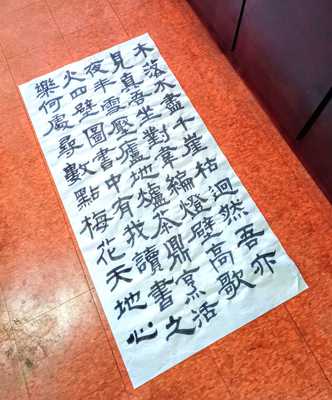 木落水盡千崖枯迥然吾亦
見真吾坐對韋編燈壁高歌
夜半雪壓廬地爐茶鼎烹活
火四壁圖書中有我讀書之
樂何處尋數點梅花天地心